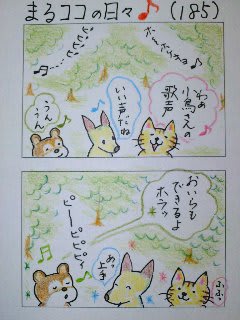 まるココの日々♪(185)
ホーホケキョ
ピピピピ
わぁ
小鳥さんの
歌声
いい声だね
うんうん
おいらも
できるよ
ホラッ
ピーピピピィ
あっ
上手
ふふ